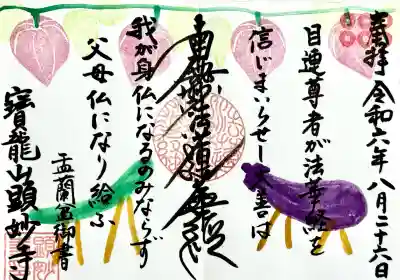 奉拝 令和六年八月二十六日
目連尊者が法華経を
信じまいらせし大善は
南無妙法蓮華経
我が身仏になるのみならず
父母仏になり給ふ
盂蘭盆御書
寶龍山頭妙寺